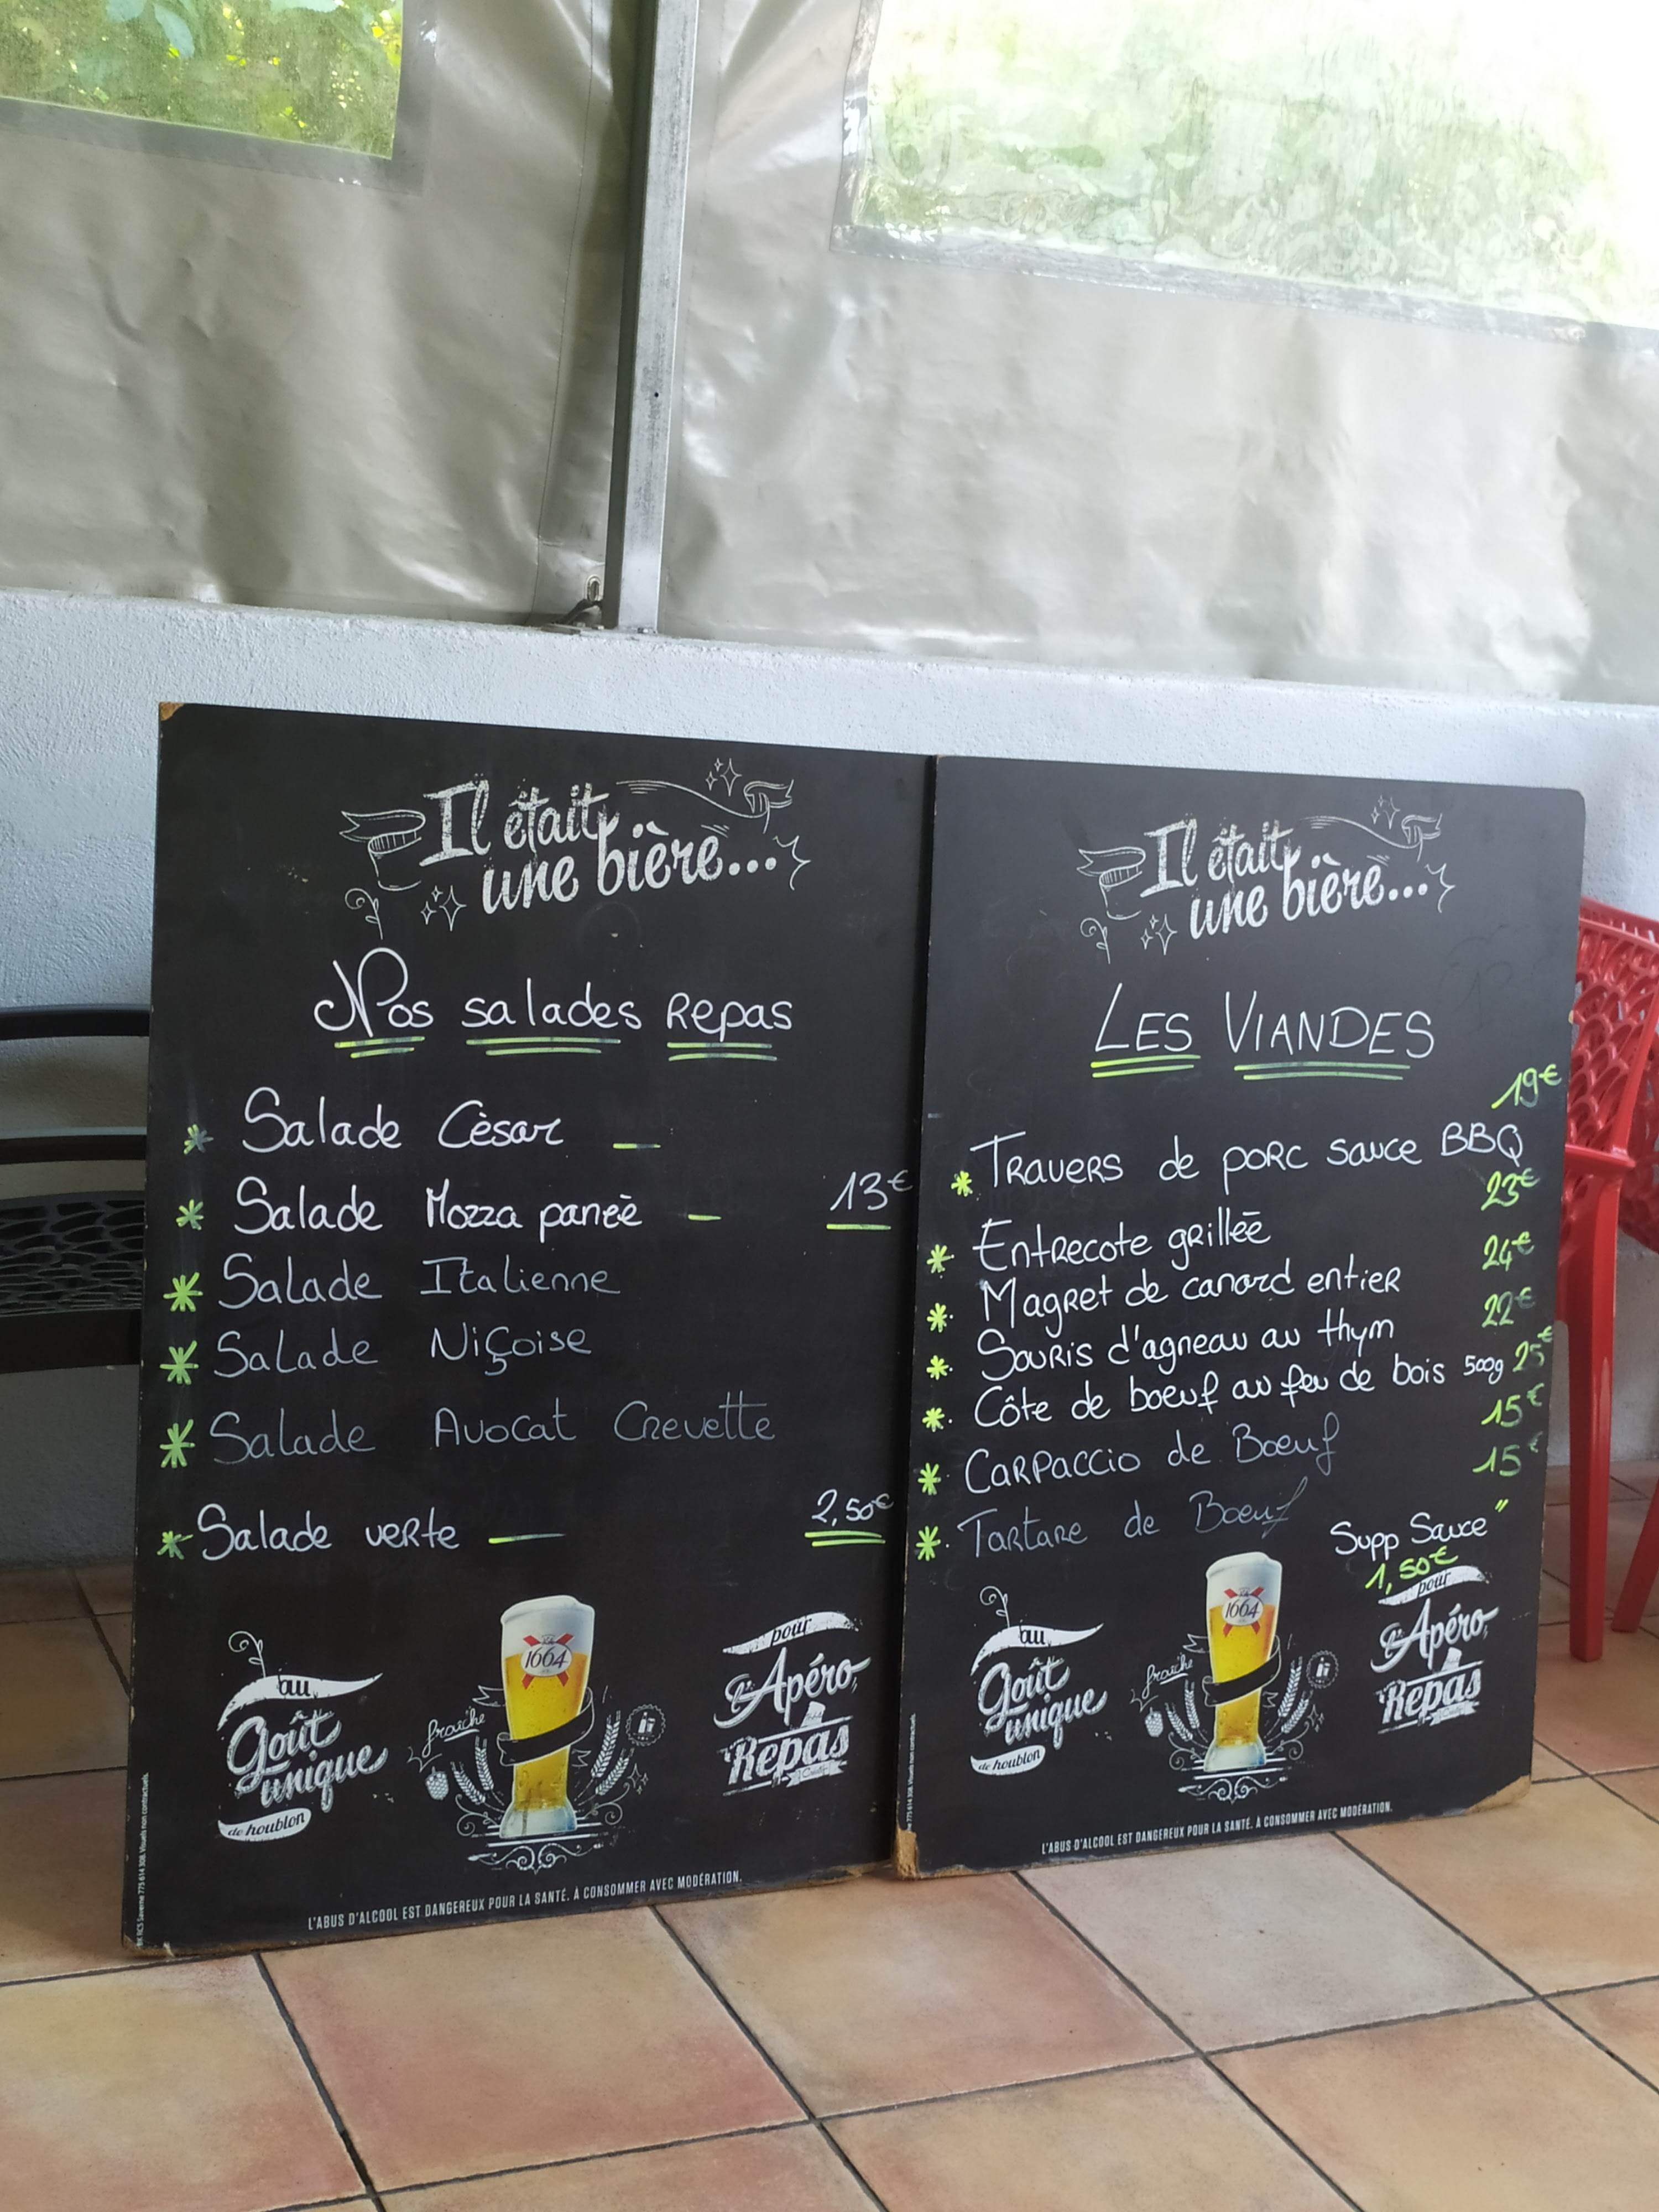 Il était
une bière...
Nos salades repas
* Salade Cèsar —
* Salade Mozza paneè — 13€
* Salade Italienne
* Salade Niçoise
* Salade Avocat Crevette
* Salade verte — 2,50€
au
Goût
unique
de houblon
fraîche
1664
pour
l'Apéro,
Repas
L'ABUS D'ALCOOL EST DANGEREUX POUR LA SANTÉ. À CONSOMMER AVEC MODÉRATION.
Il était
une bière...
LES VIANDES
* Travers de porc sauce BBQ 19€
* Entrecote grillée 23€
* Magret de canard entier 24€
* Souris d'agneau au thym 22€
* Côte de boeuf au feu de bois 500g 25€
* Carpaccio de Boeuf 15€
* Tartare de Boeuf 15€
Supp Sauce "
1,50€
au
Goût
unique
de houblon
fraîche
1664
pour
l'Apéro,
Repas
L'ABUS D'ALCOOL EST DANGEREUX POUR LA SANTÉ. À CONSOMMER AVEC MODÉRATION.